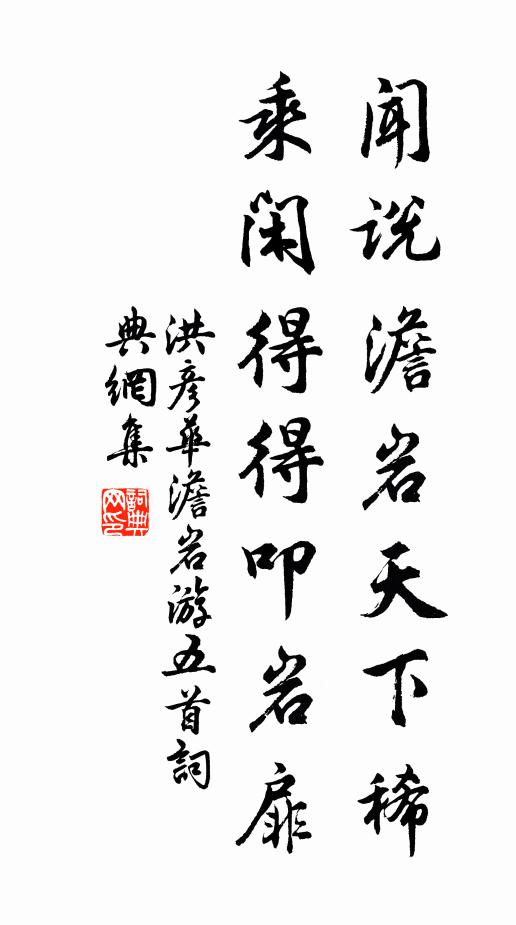 闻说澹岩天下稀
乘闲得得叩岩扉
洪彦华澹岩游五首詞
典網集
詞典
网印